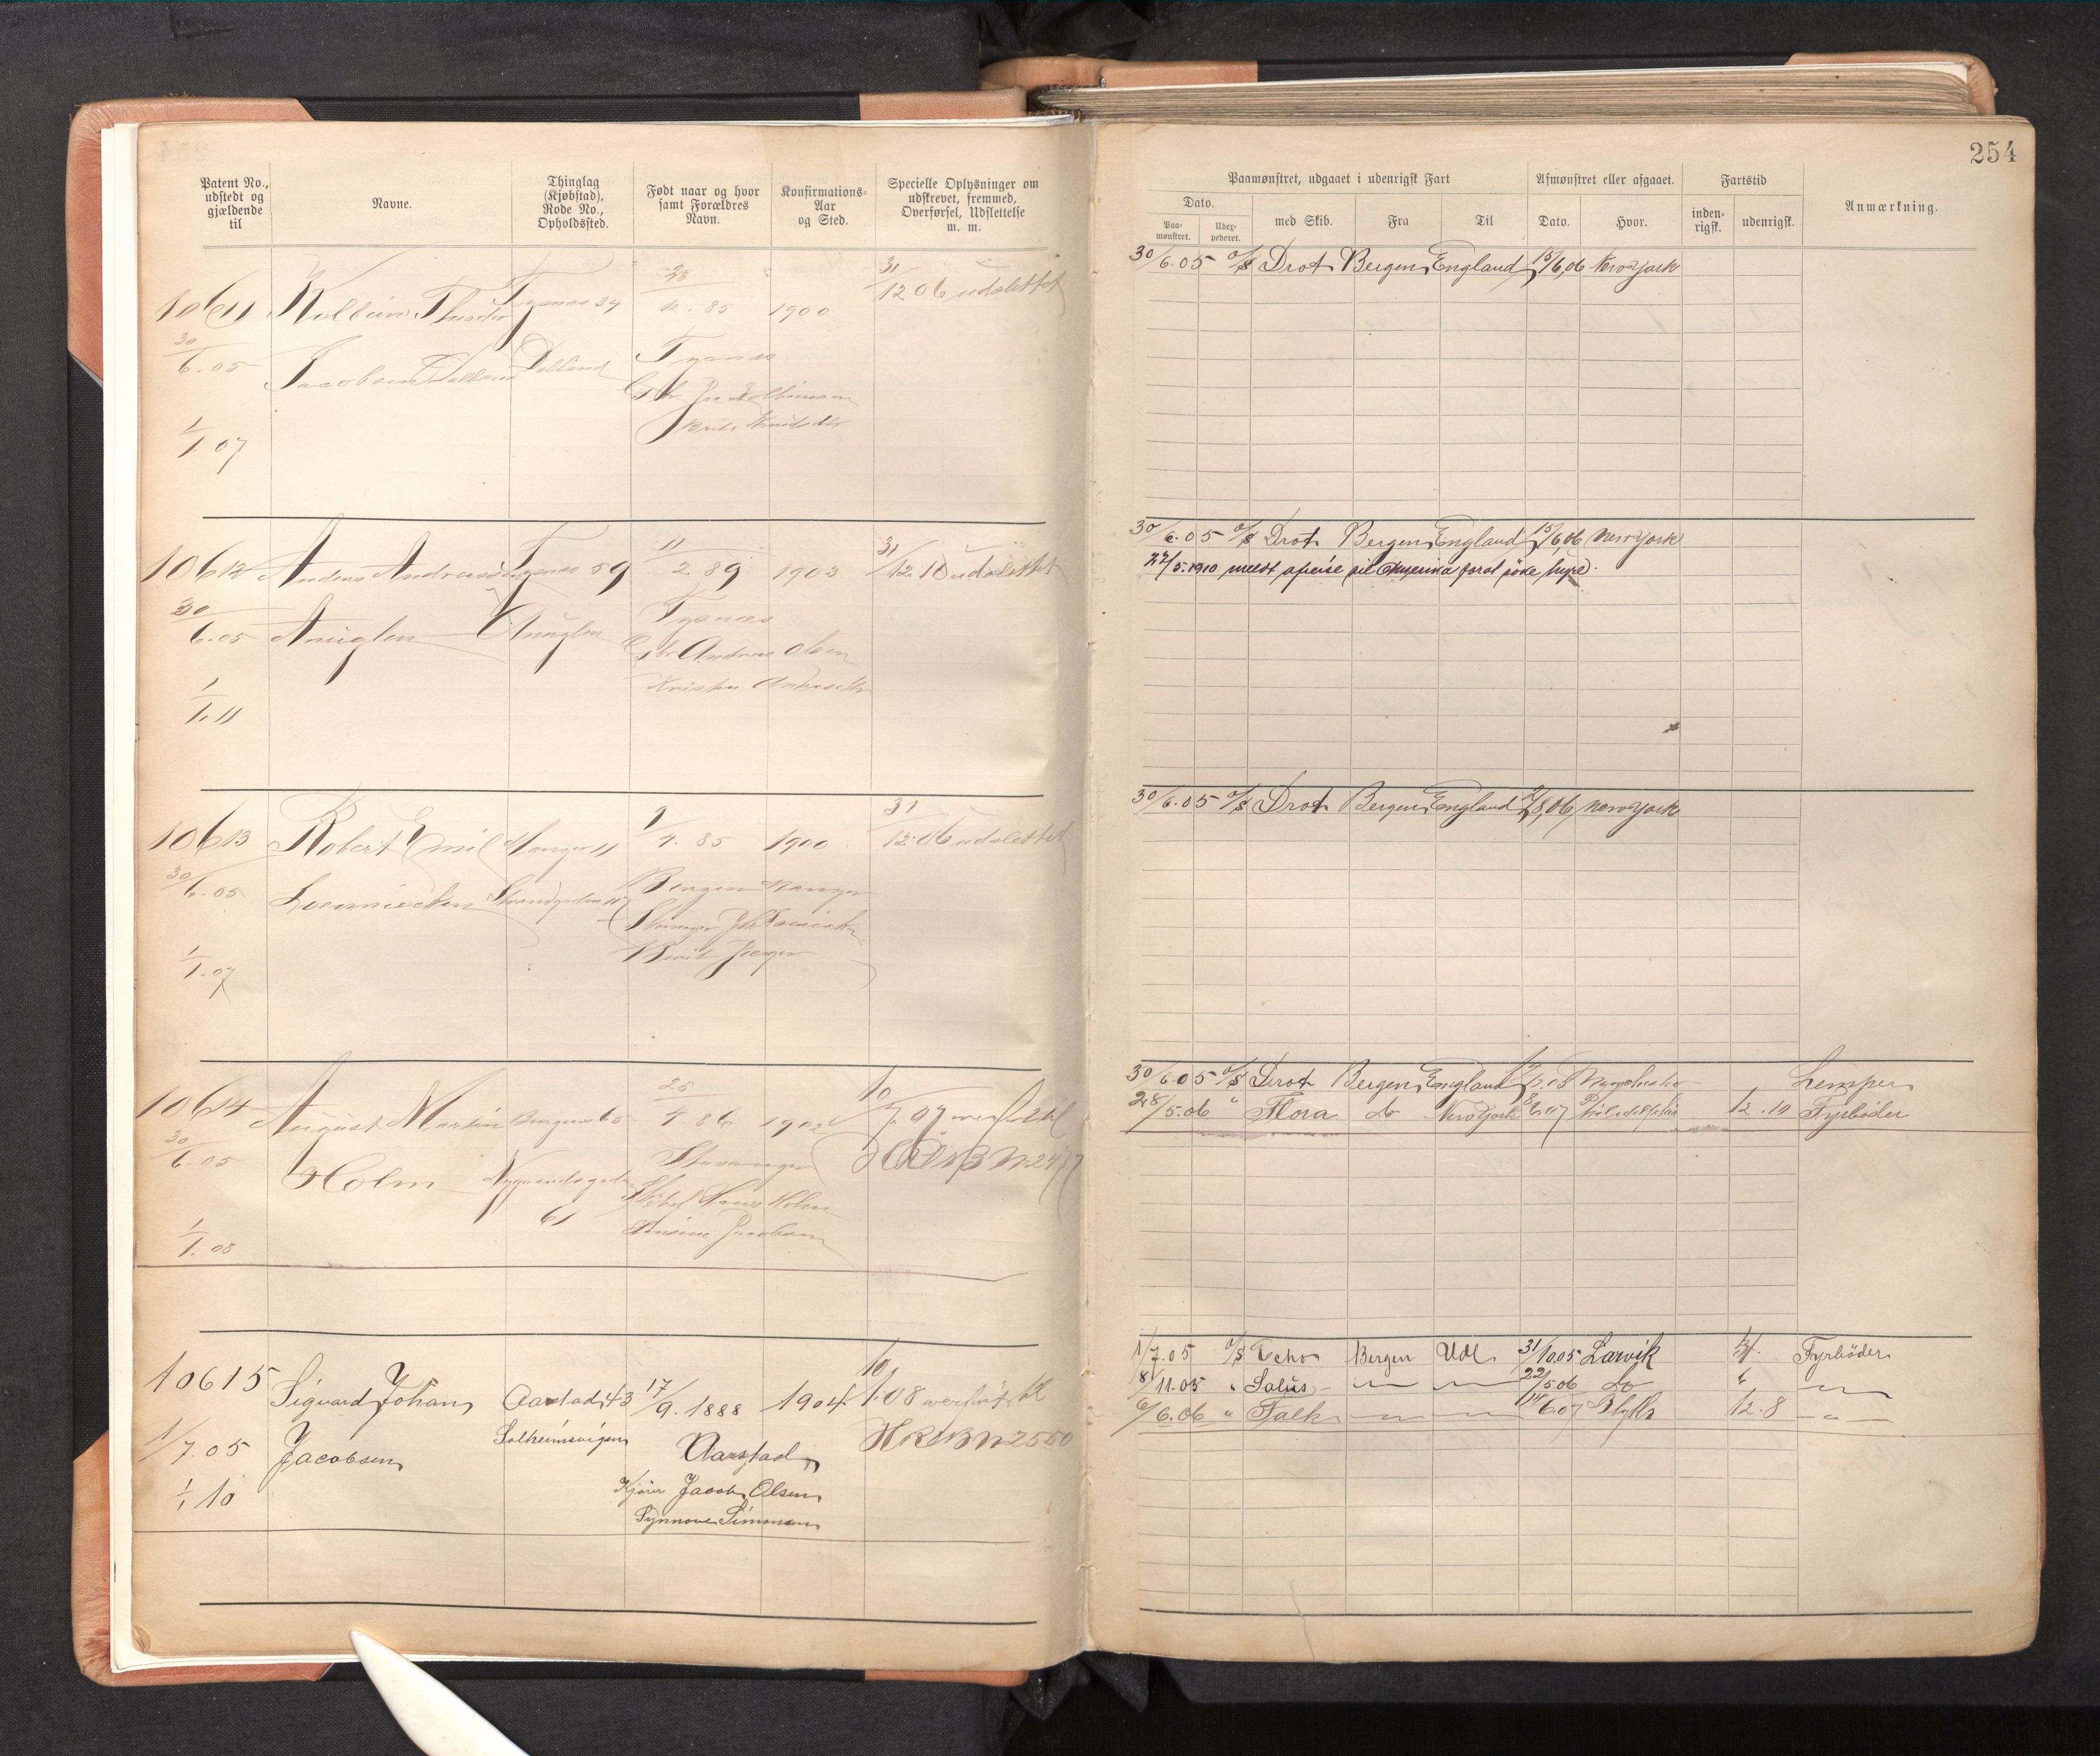 254
Patent No., udstedt og gjældende til
Navne.
Thinglag (Kjøbstad), Rode No., Opholdssted.
Født naar og hvor samt Forældres Navn.
Konfirmations-Aar og Sted.
Specielle Oplysninger om udskrevet, fremmed, Overførsel, Udslettelse m. m.
Paamønstret, udgaaet i udenrigsk Fart
Afmønstret eller afgaaet.
Fartstid
Anmærkning.
Dato.
Paa-mønstret.
Udex-pederet.
med Skib.
Fra
Til
Dato.
Hvor.
inden-rigsk.
udenrigsk.
10611 Kolbein Theodor Tysnes 34 23/12.85 1900 31/12 06 udslettet
30/6.05 Jacobsen Dalland Dalland Tysnes
Kolbeinsen
Brita Knudsdtr
1/1 07
30/6.05 D/S Drot Bergen England 15/6,06 New York
10612 Anders Andreas Tysnes 59 11/2.89 1903 31/12.10 udslettet
30/6.05 Anuglen Anuglen Tysnes
Gbr Andreas Olsen
1/1.11
30/6.05 D/S Drot Bergen England 15/6,06 New York
27/5.1910 meldt afreise til Amerika for at søke hyre.
10613 Robert Emil Manger 11 9/4.85 1900 31/12.06 udslettet
30/6.05 Strandgaden Bergen Manger
Berit
1/1.07
30/6.05 D/S Drot Bergen England 8,06 New York
10614 August Martin Bergen 65 25/4.86 1902 10/7.07 overført til
30/6.05 Holm Nygaardsgaden Stavanger HRBN 2477
61 Hans Holm
Jacobsen
1/1.08
30/6.05 D/S Drot Bergen England Lemper
28/5.06 " Flora do New York 8/6.07 Philadelphia 12.10 Fyrbøder
10615 Sigvard Johan Aarstad 43 17/9.1888 1904 10/1.08 overført til
Solheimsvigen HRBN 2550
1/7.05 Jacobsen Aarstad
1/1 10 Kjører Jacob Olsen
Synnove Simonsen
1/7.05 D/S Echo Bergen Udl. 31/10.05 Larvik 4. Fyrbøder
8/11.05 " Salus — — 22/5.06 do 6 —
6/6.06 " Falk — — 14/6.07 Blyth 12.8 — " —